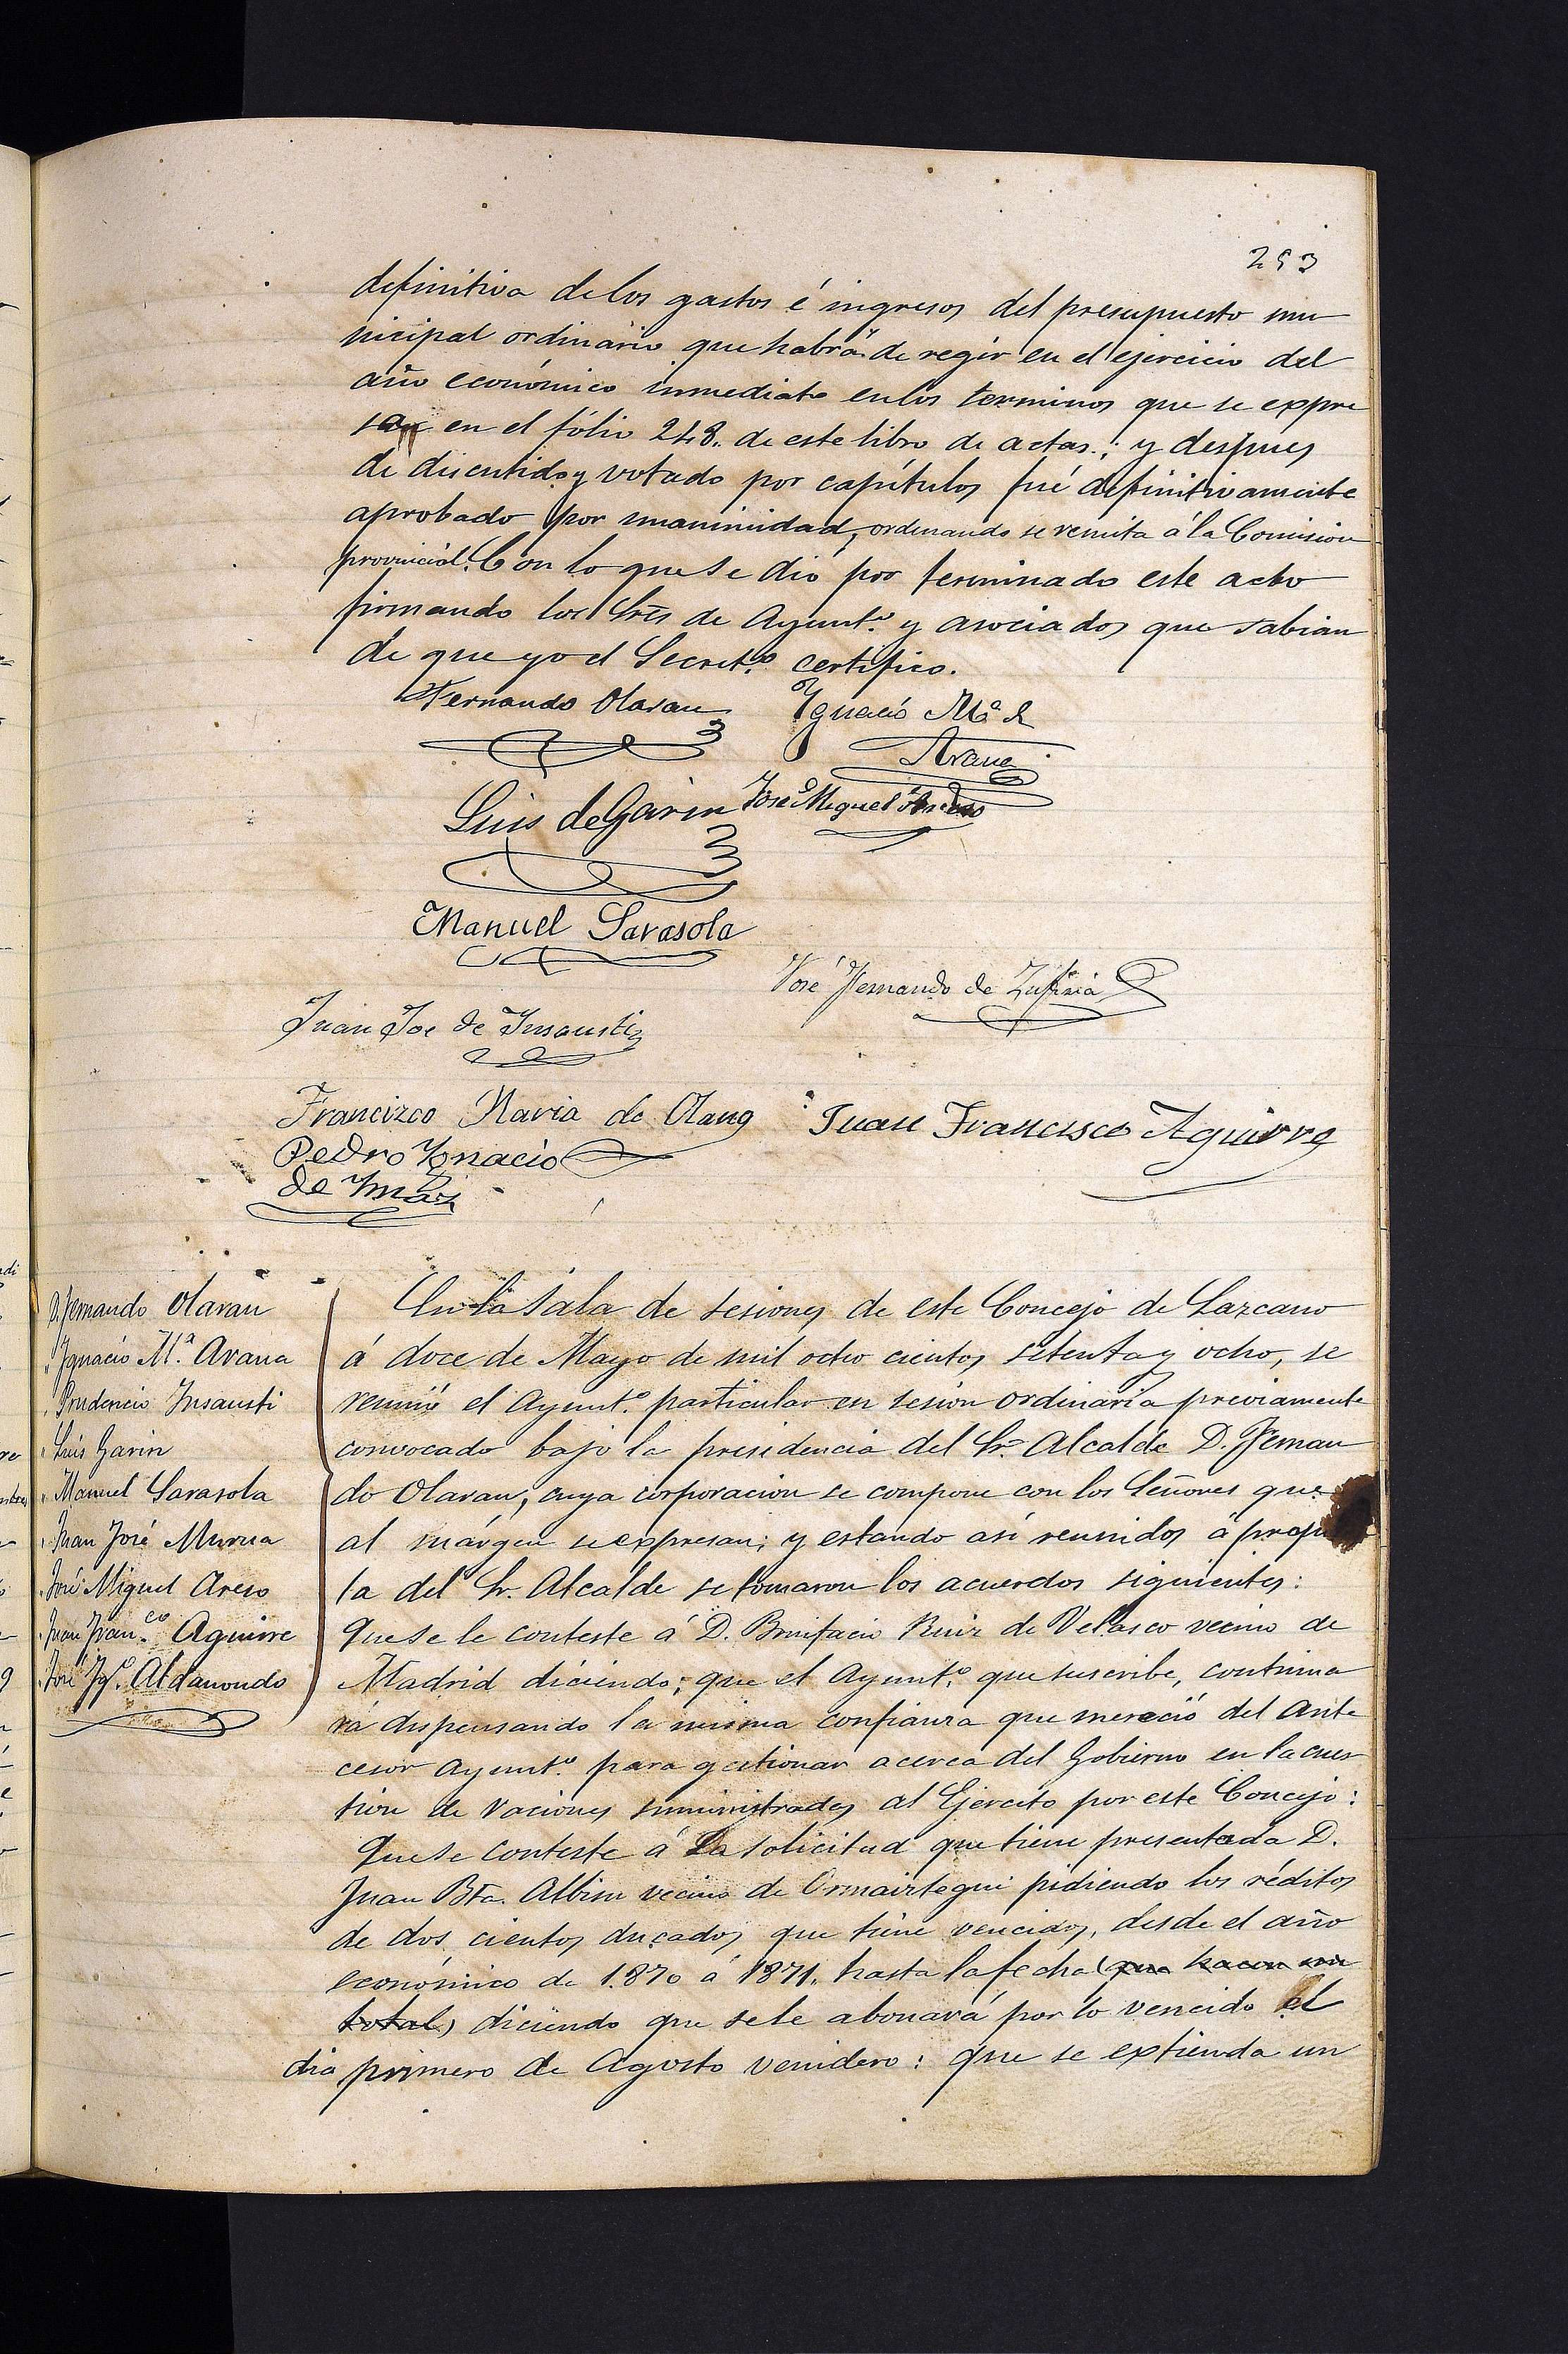 253
definitiva de los gastos é ingresos del presupuesto mu
nicipal ordinario que habrá de regir en el ejercicio del
año económico inmediato en los terminos que se expre
san en el fólio 248. de este libro de actas; y despues
de discutido y votado por capítulos fué definitivamente
aprobado por unanimidad, ordenando se remita á la Comision
provincial. Con lo que se dió por terminado este acto
firmando los Sres de Ayunt.º y asociados que sabian
de que yo el Secret.º certifico.
Fernando Olaran Ignacio Mª de
Arana
Luis de Garin José Miguel
Manuel Sarasola
José Fernando de
Juan Joe de Insausti
Francizco Maria de Olang Juan Francisco Aguirre
Pedro Ygnacio
de Imaz
D. Fernando Olaran
" Ignacio M.ª Arana
" Prudencio Insausti
" Luis Garin
" Manuel Sarasola
" Juan José Murua
" José Miguel Areso
" Juan Fran.co Aguirre
" José Ig.º Aldanondo
En la Sala de sesiones de este Concejo de Lazcano
á doce de Mayo de mil ocho cientos setenta y ocho, se
reunió el Ayunt.º particular en sesion ordinaria previamente
convocado bajo la presidencia del Sr. Alcalde D. Fernan
do Olaran, cuya corporacion se compone con los Señores que
al márgen se expresan; y estando así reunidos á propu
ta del Sr. Alcalde se tomaron los acuerdos siguientes:
Que se le conteste á D. Bonifacio Ruiz de Velasco vecino de
Madrid diciendo; que el Ayunt.º que suscribe, continua
rá dispensando la misma confianza que mereció del ante
cesor Ayunt.º para gestionar acerca del Gobierno en la cues
tion de raciones suministradas al Ejercito por este Concejo:
Que se conteste á la solicitud que tiene presentada D.
Juan Bta. Albisu vecino de Ormaiztegui pidiendo los réditos
de dos cientos ducados que tiene vencidos, desde el año
económico de 1.870 á 1871. hasta la fecha (que hacen un
total) diciendo que se le abonará por lo vencido el
dia primero de Agosto venidero: que se extienda un